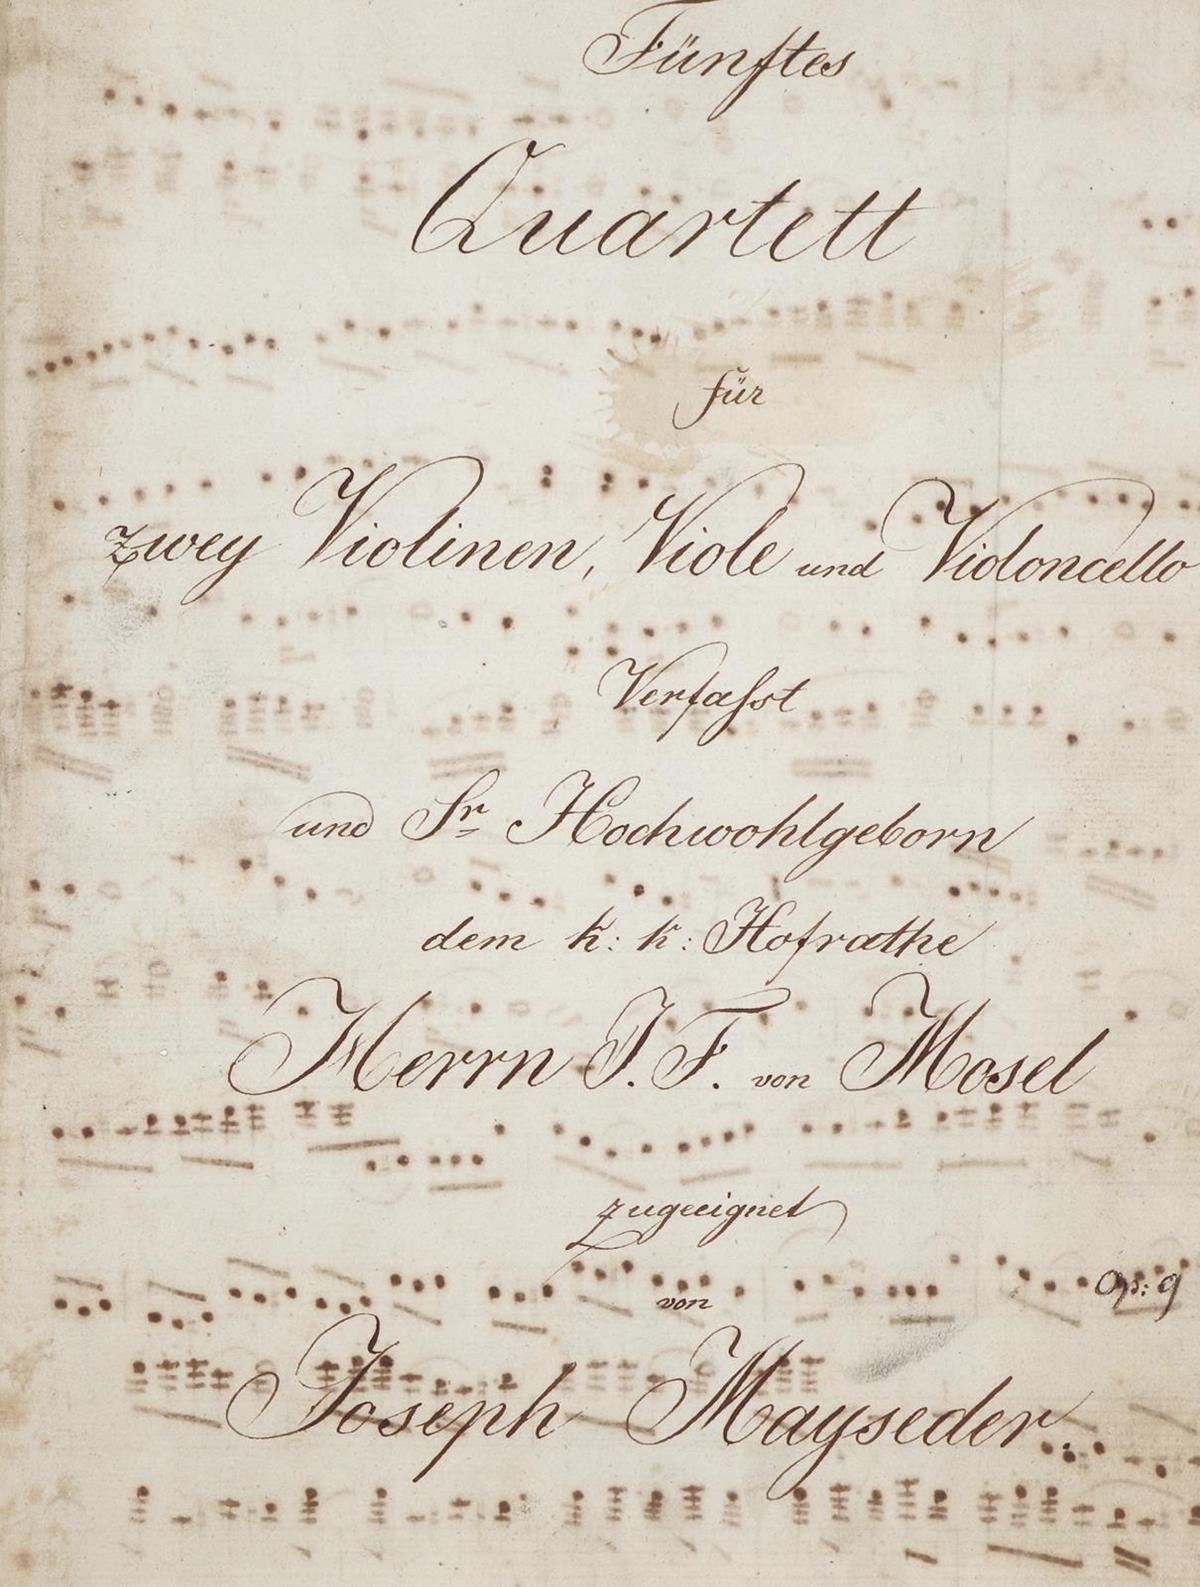 Fünftes
Quartett
für
zwey Violinen, Viole und Violoncello
Verfasst
und Sr Hochwohlgeborn
dem k: k: Hofrathe
Herrn I. F. von Mosel
zugeeignet
von
Op: 9
Joseph Mayseder.